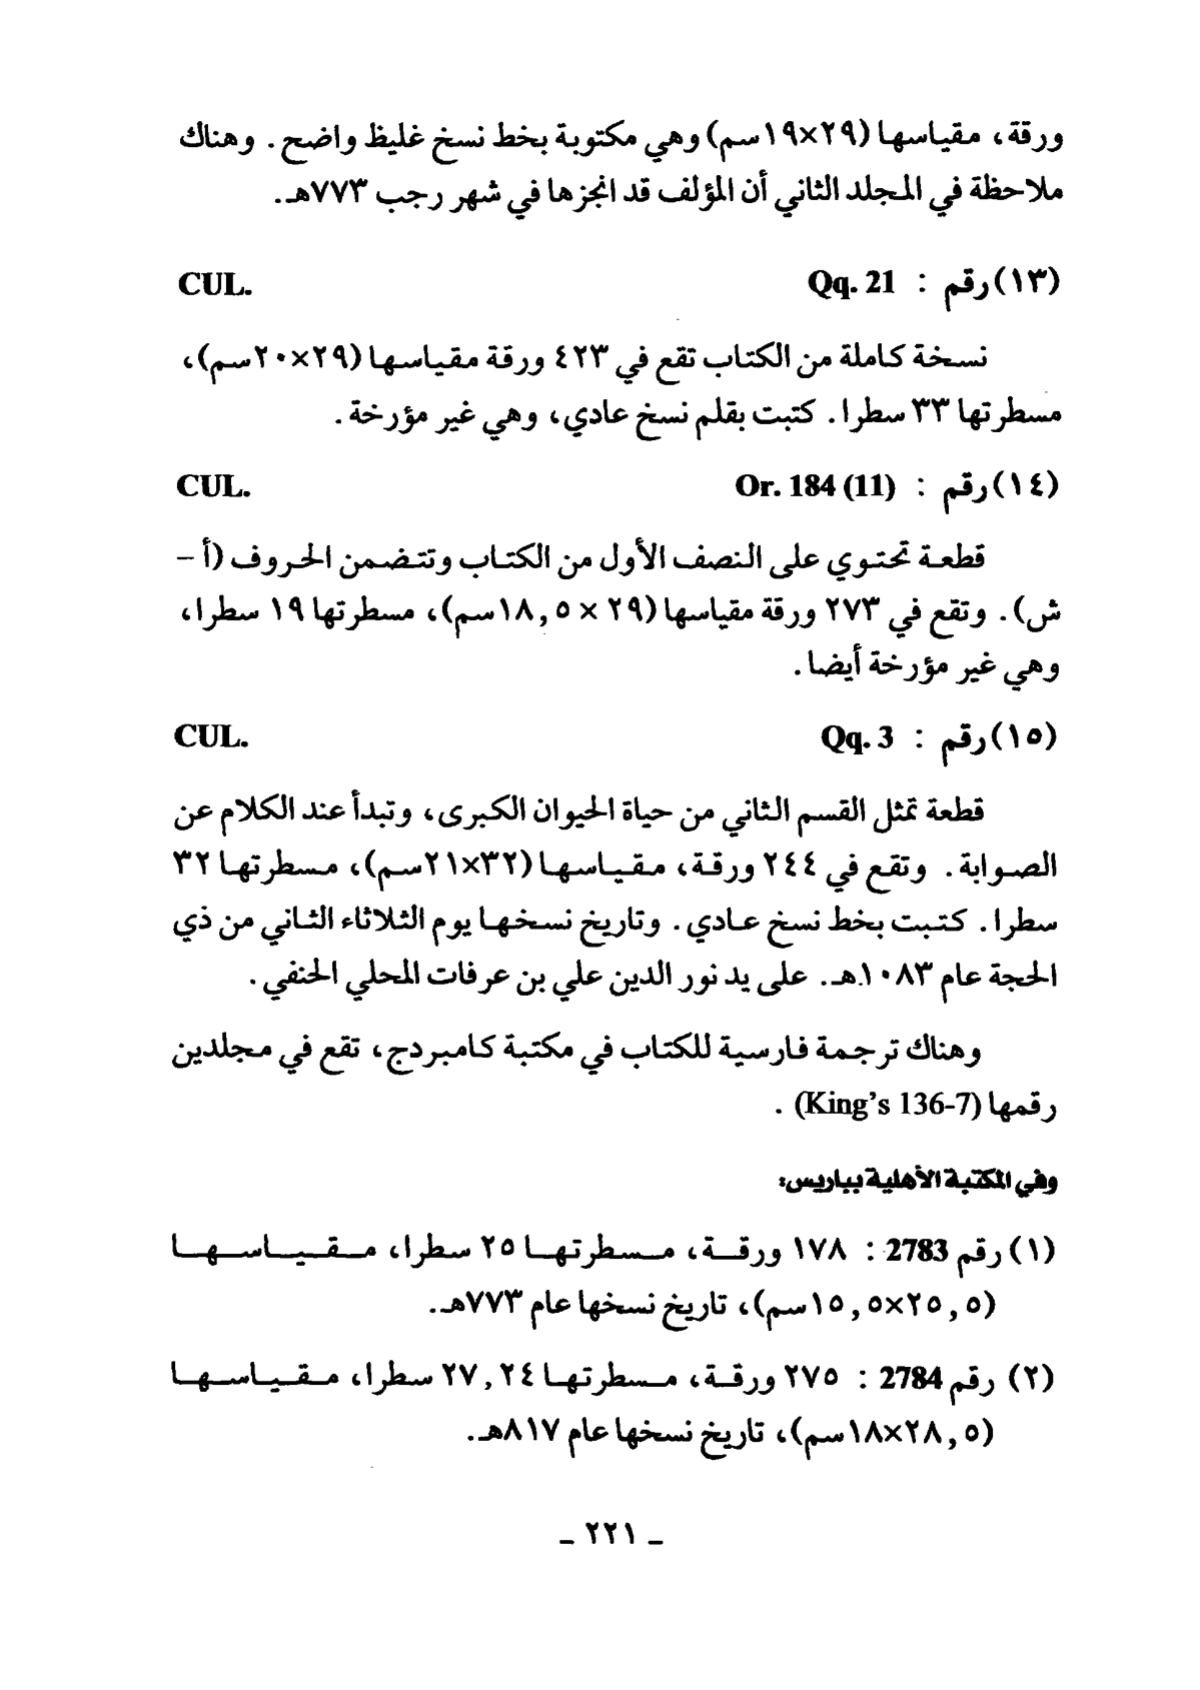 ورقة، مقياسها (٢٩×١٩سم) وهي مكتوبة بخط نسخ غليظ واضح. وهناك
ملاحظة في المجلد الثاني أن المؤلف قد انجزها في شهر رجب ٧٧٣هـ.
(١٣) رقم : Qq. 21 CUL.
نسخة كاملة من الكتاب تقع في ٤٢٣ ورقة مقياسها (٢٩×٢٠سم)،
مسطرتها ٣٣ سطرا. كتبت بقلم نسخ عادي، وهي غير مؤرخة.
(١٤) رقم : Or. 184 (11) CUL.
قطعة تحتوي على النصف الأول من الكتاب وتتضمن الحروف (أ –
ش). وتقع في ٢٧٣ ورقة مقياسها (٢٩ × ١٨,٥سم)، مسطرتها ١٩ سطرا،
وهي غير مؤرخة أيضا.
(١٥) رقم : Qq. 3 CUL.
قطعة تمثل القسم الثاني من حياة الحيوان الكبرى، وتبدأ عند الكلام عن
الصوابة. وتقع في ٢٤٤ ورقة، مقياسها (٣٢×٢١سم)، مسطرتها ٣٢
سطرا. كتبت بخط نسخ عادي. وتاريخ نسخها يوم الثلاثاء الثاني من ذي
الحجة عام ١٠٨٣هـ. على يد نور الدين علي بن عرفات المحلي الحنفي.
وهناك ترجمة فارسية للكتاب في مكتبة كامبردج، تقع في مجلدين
رقمها (King's 136-7) .
وفي المكتبة الأهلية بباريس:
(١) رقم 2783 : ١٧٨ ورقة، مسطرتها ٢٥ سطرا، مقياسها
(٢٥,٥×١٥,٥سم)، تاريخ نسخها عام ٧٧٣هـ.
(٢) رقم 2784 : ٢٧٥ ورقة، مسطرتها ٢٧,٢٤ سطرا، مقياسها
(٢٨,٥×١٨سم)، تاريخ نسخها عام ٨١٧هـ.
ـ ٢٢١ ـ